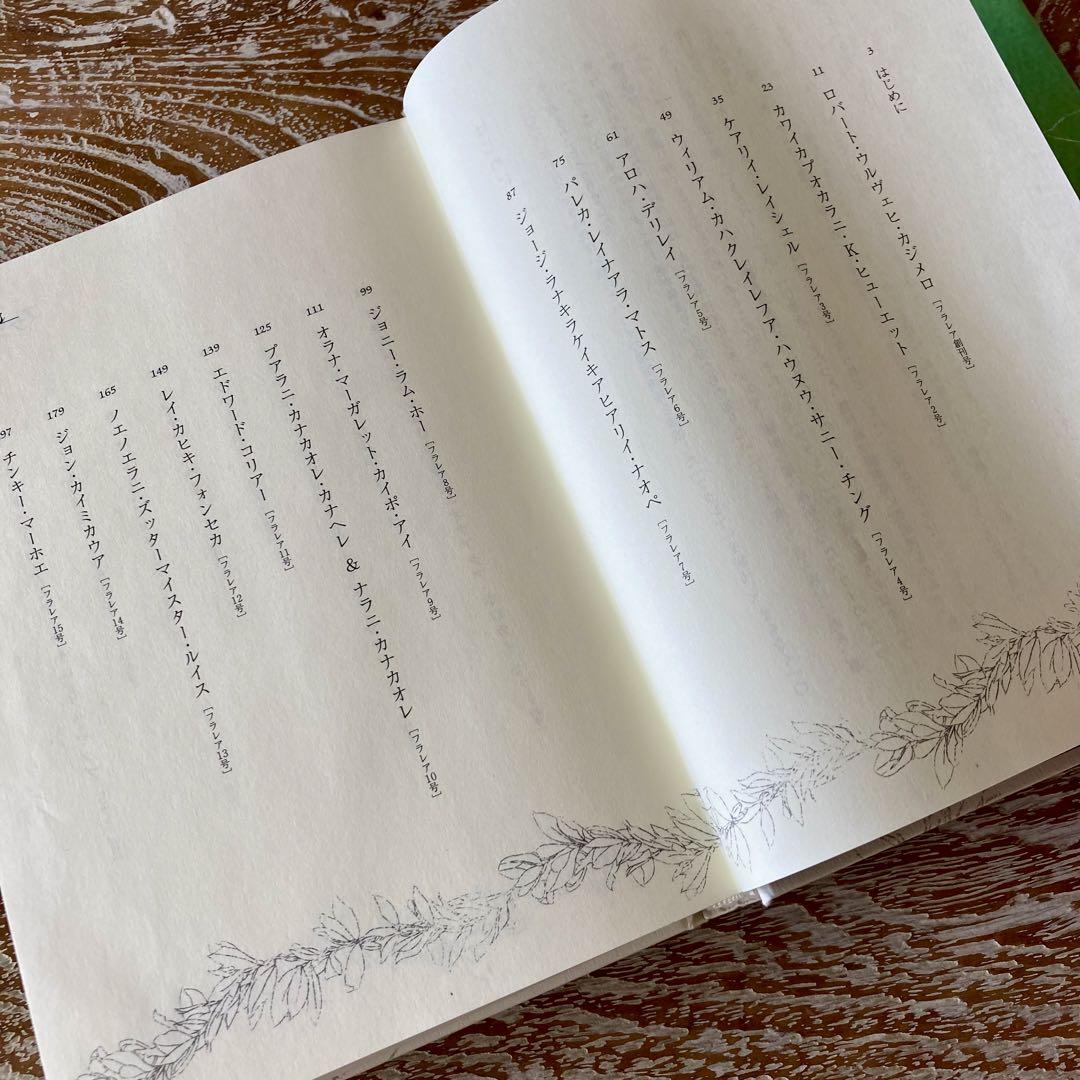 3 はじめに
11 ロバート・ウルヴェヒ・カジメロ［フラレア創刊号］
23 カワイカプオカラニ・K・ヒューエット［フラレア2号］
35 ケアリィ・レイシェル［フラレア3号］
49 ウィリアム・カハクレイレフア・ハウヌウ・サニー・チング［フラレア4号］
61 アロハ・デリレイ［フラレア5号］
75 パレカ・レイナアラ・マトス［フラレア6号］
87 ジョージ・ラナキラケイキアヒアリイ・ナオペ［フラレア7号］
99 ジョニー・ラム・ホー［フラレア8号］
111 オラナ・マーガレット・カイポ・アイ［フラレア9号］
125 プアラニ・カナカオレ・カナヘレ & ナラニ・カナカオレ［フラレア10号］
139 エドワード・コリアー［フラレア11号］
149 レイ・カヒキ・フォンセカ［フラレア12号］
165 ノエノエラニ・ズッターマイスター・ルイス［フラレア13号］
179 ジョン・カイミカウア［フラレア14号］
97 チンキー・マーホエ［フラレア15号］